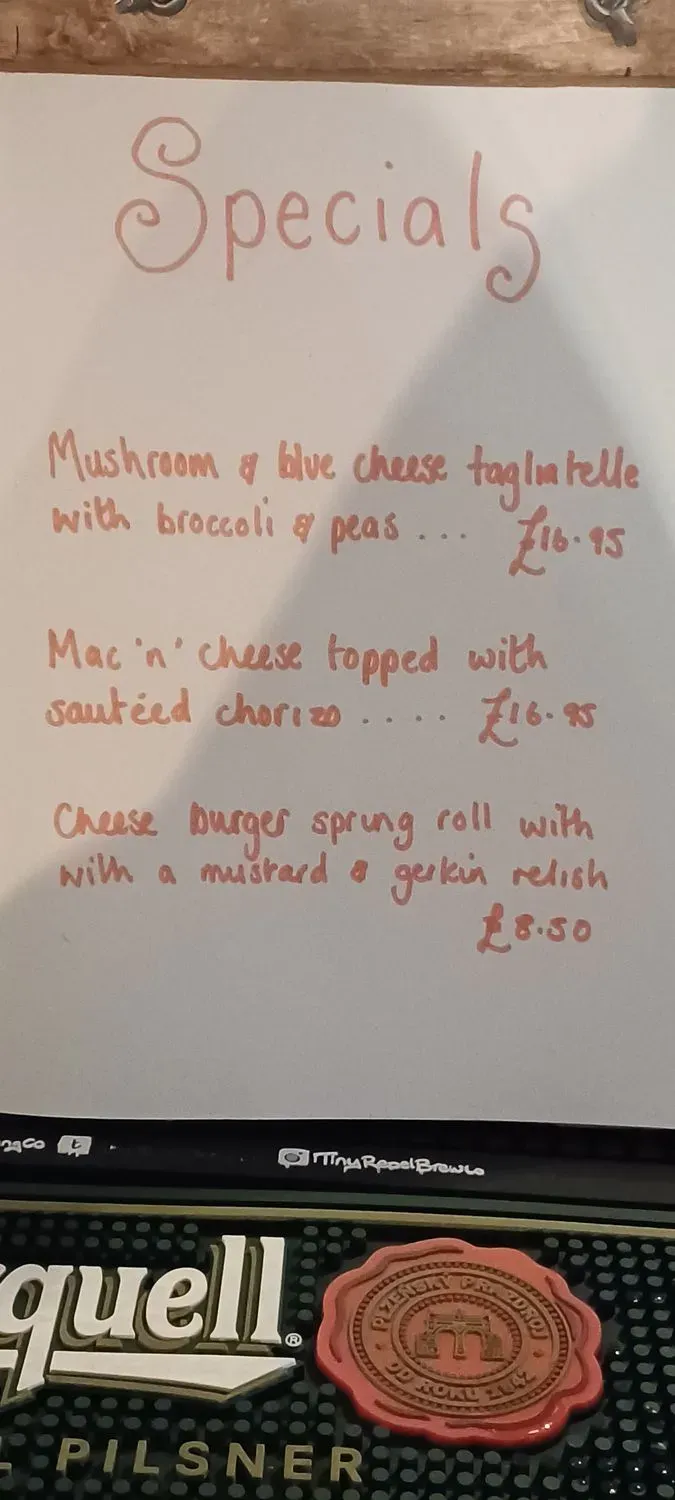 Specials
Mushroom & blue cheese tagliatelle
with broccoli & peas ... £16.95
Mac 'n' cheese topped with
sautéed chorizo ..... £16.95
Cheese burger spring roll with
with a mustard & gerkin relish
£8.50
quell®
PILSNER
PLZEŇSKÝ PRAZDROJ
OD ROKU 1842